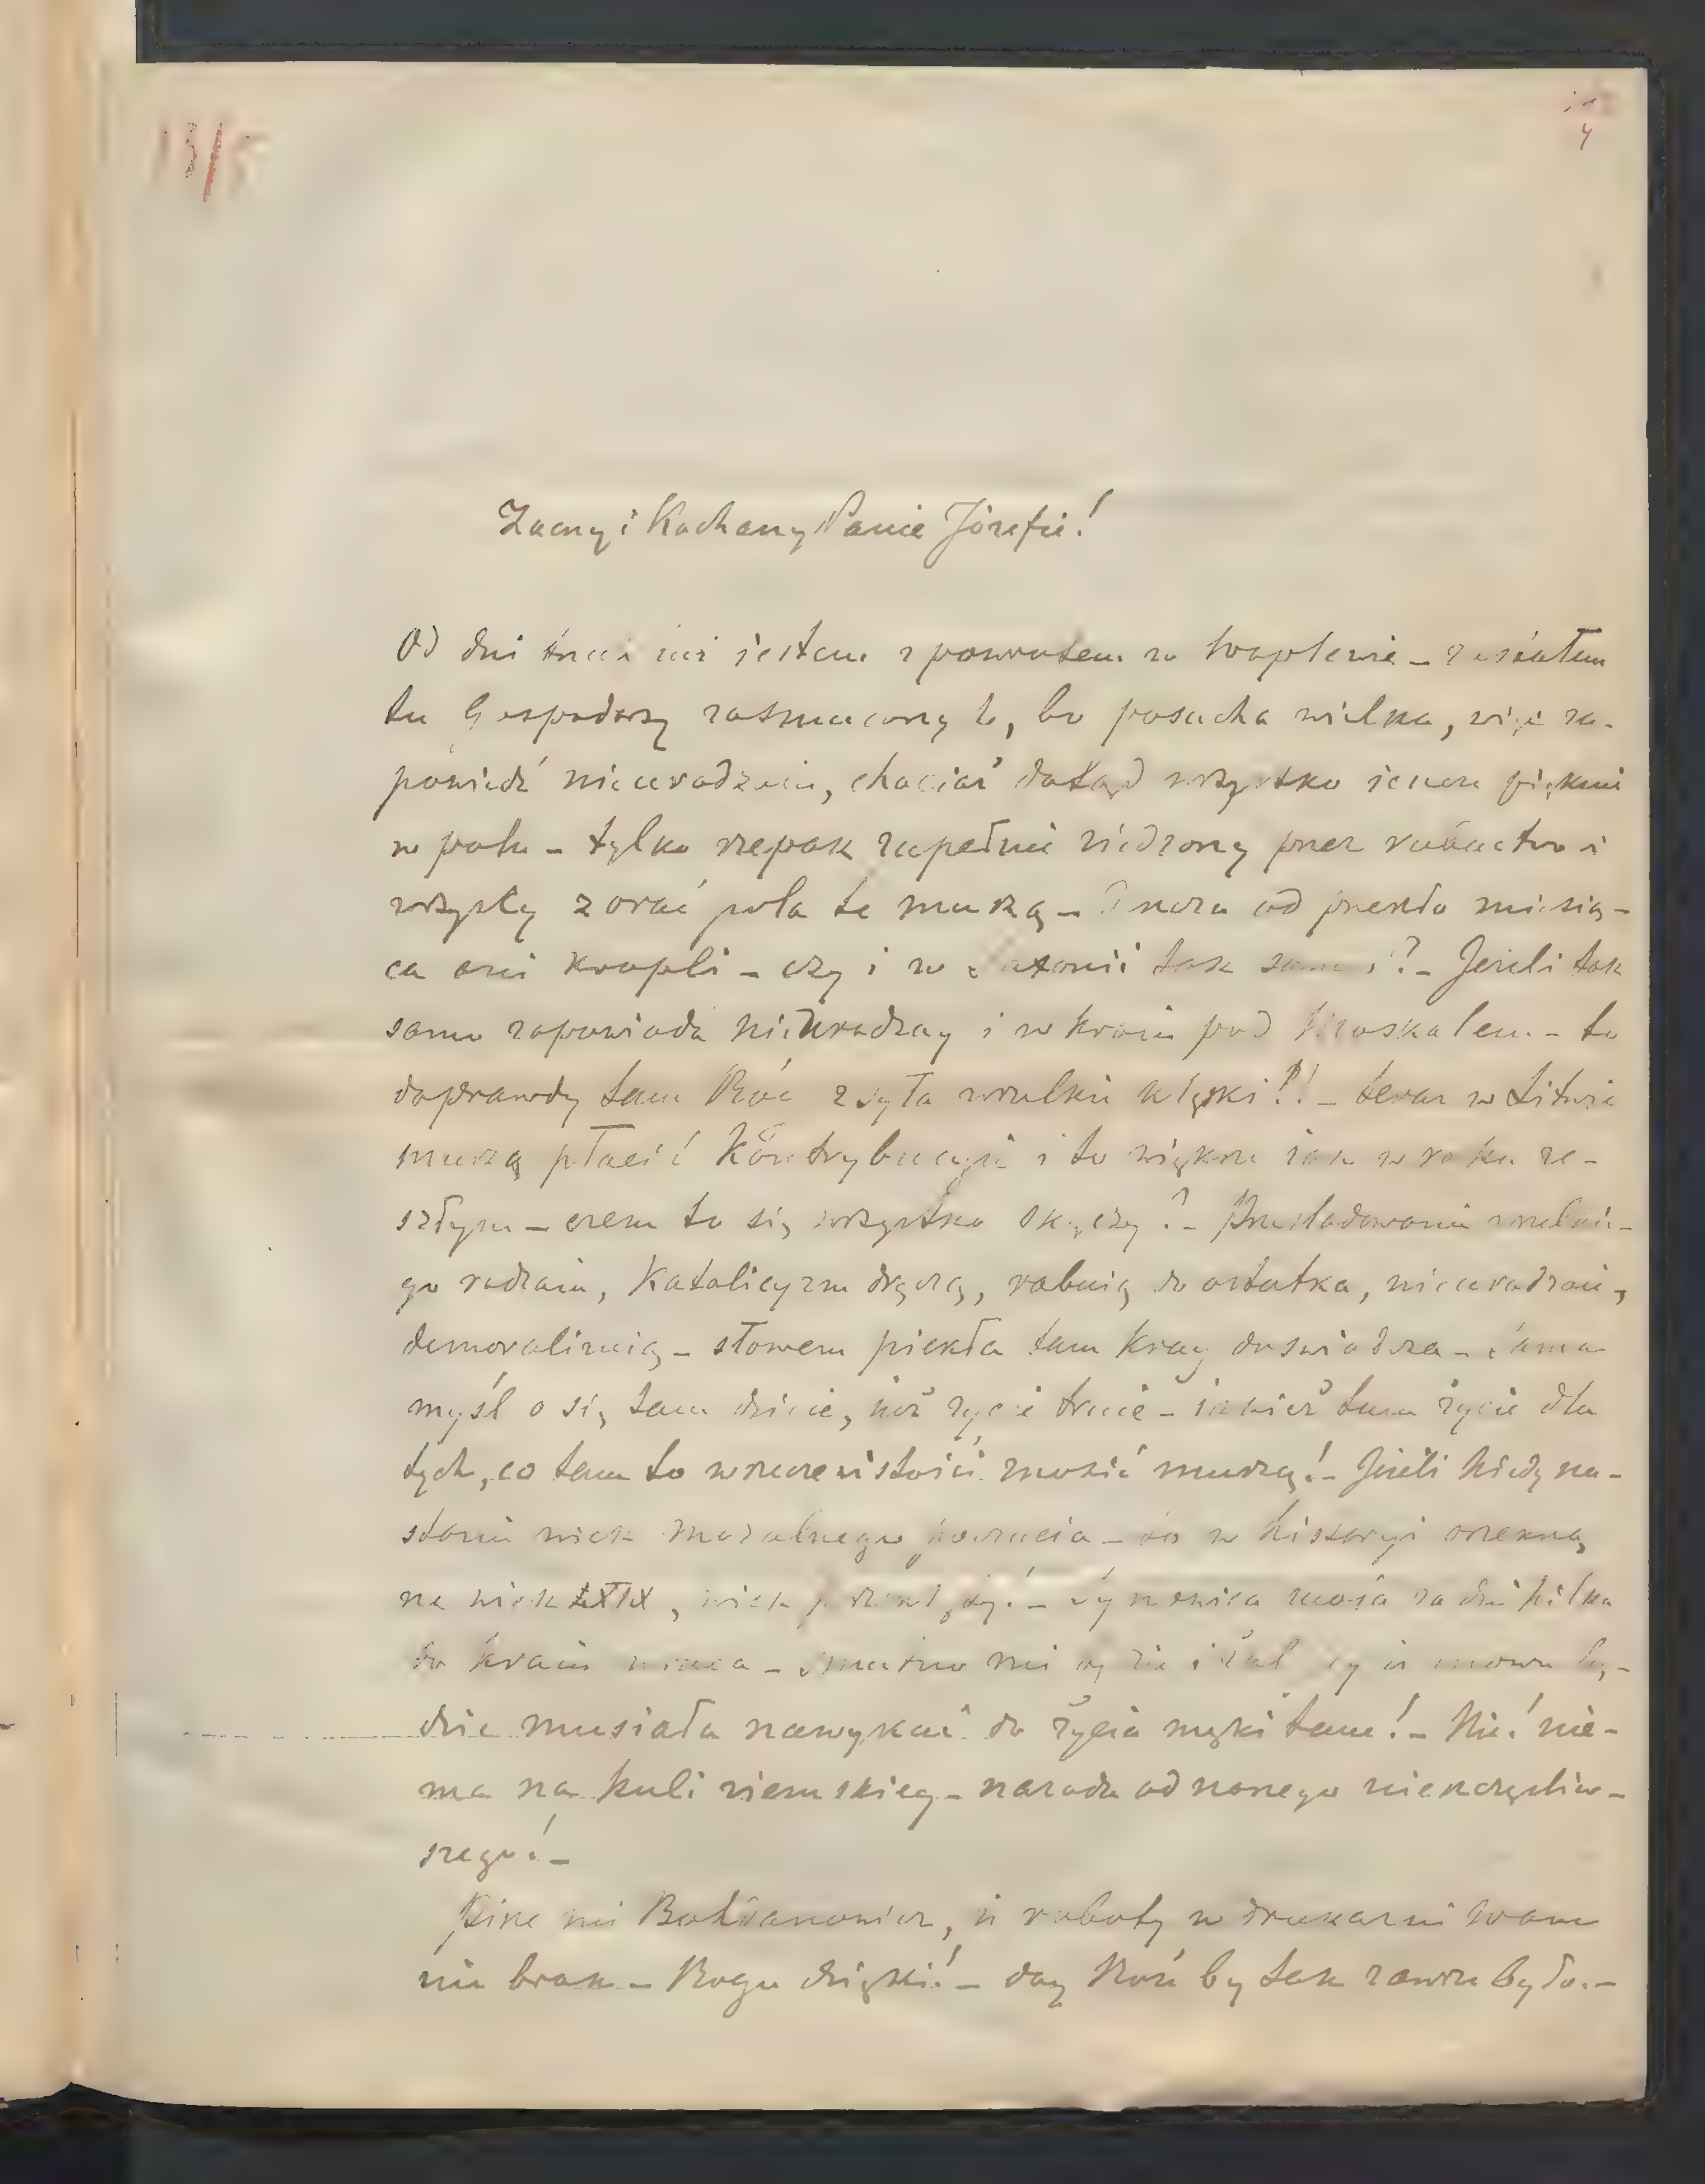 13/5
4
Zacny i Kochany Panie Józefie!
Od dni trzech już jestem z powrotem w Waplewie – zastałem
tu Gospodarzy zasmuconych, bo posucha wielka, więc za-
powiedź nieurodzaju, chociaż dotąd wszystko jeszcze pięknie
w polu – tylko rzepak zupełnie zjedzony przez robactwo i
wszyscy zorać pola te muszą – Deszczu od przeszło miesią-
ca ani kropli – czy i w tak samo? – Jeżeli tak
samo zapowiada nieurodzay i w kraju pod Moskalem – to
doprawdy tam Bóg zsyła wszelkie klęski!! – teraz w Litwie
muszą płacić Kontrybucyje i to większe jak w roku ze-
szłym – czem to się wszystko skączy? – Prześladowania wszelkie-
go rodzaju, Katolicyzm dręczą, rabują do ostatka, nieurodzaie,
demoralizują – słowem piekła tam kray doświadcza – sama
myśl o się tam dzieie, już życie truie – jakież tam życie dla
tych, co tam to w rzeczewistości znosić muszą! – Jeżeli kiedy na-
stanie wiek moralnego poczucia – to w historyi orzekną
na wiek XIX, wiek – moja za dni kilka
do kraiu wraca – smutno mi i żal iż znowu bę-
dzie musiała nawykać do życia męki tam! – Nie! nie-
ma na kuli ziemskiey – narodu od naszego nieszczęśliw-
szego! –
Pisze mi Bohdanowicz, iż roboty w drukarni Wam
nie brak – Bogu dzięki! – day Boże by tak zawsze było. –